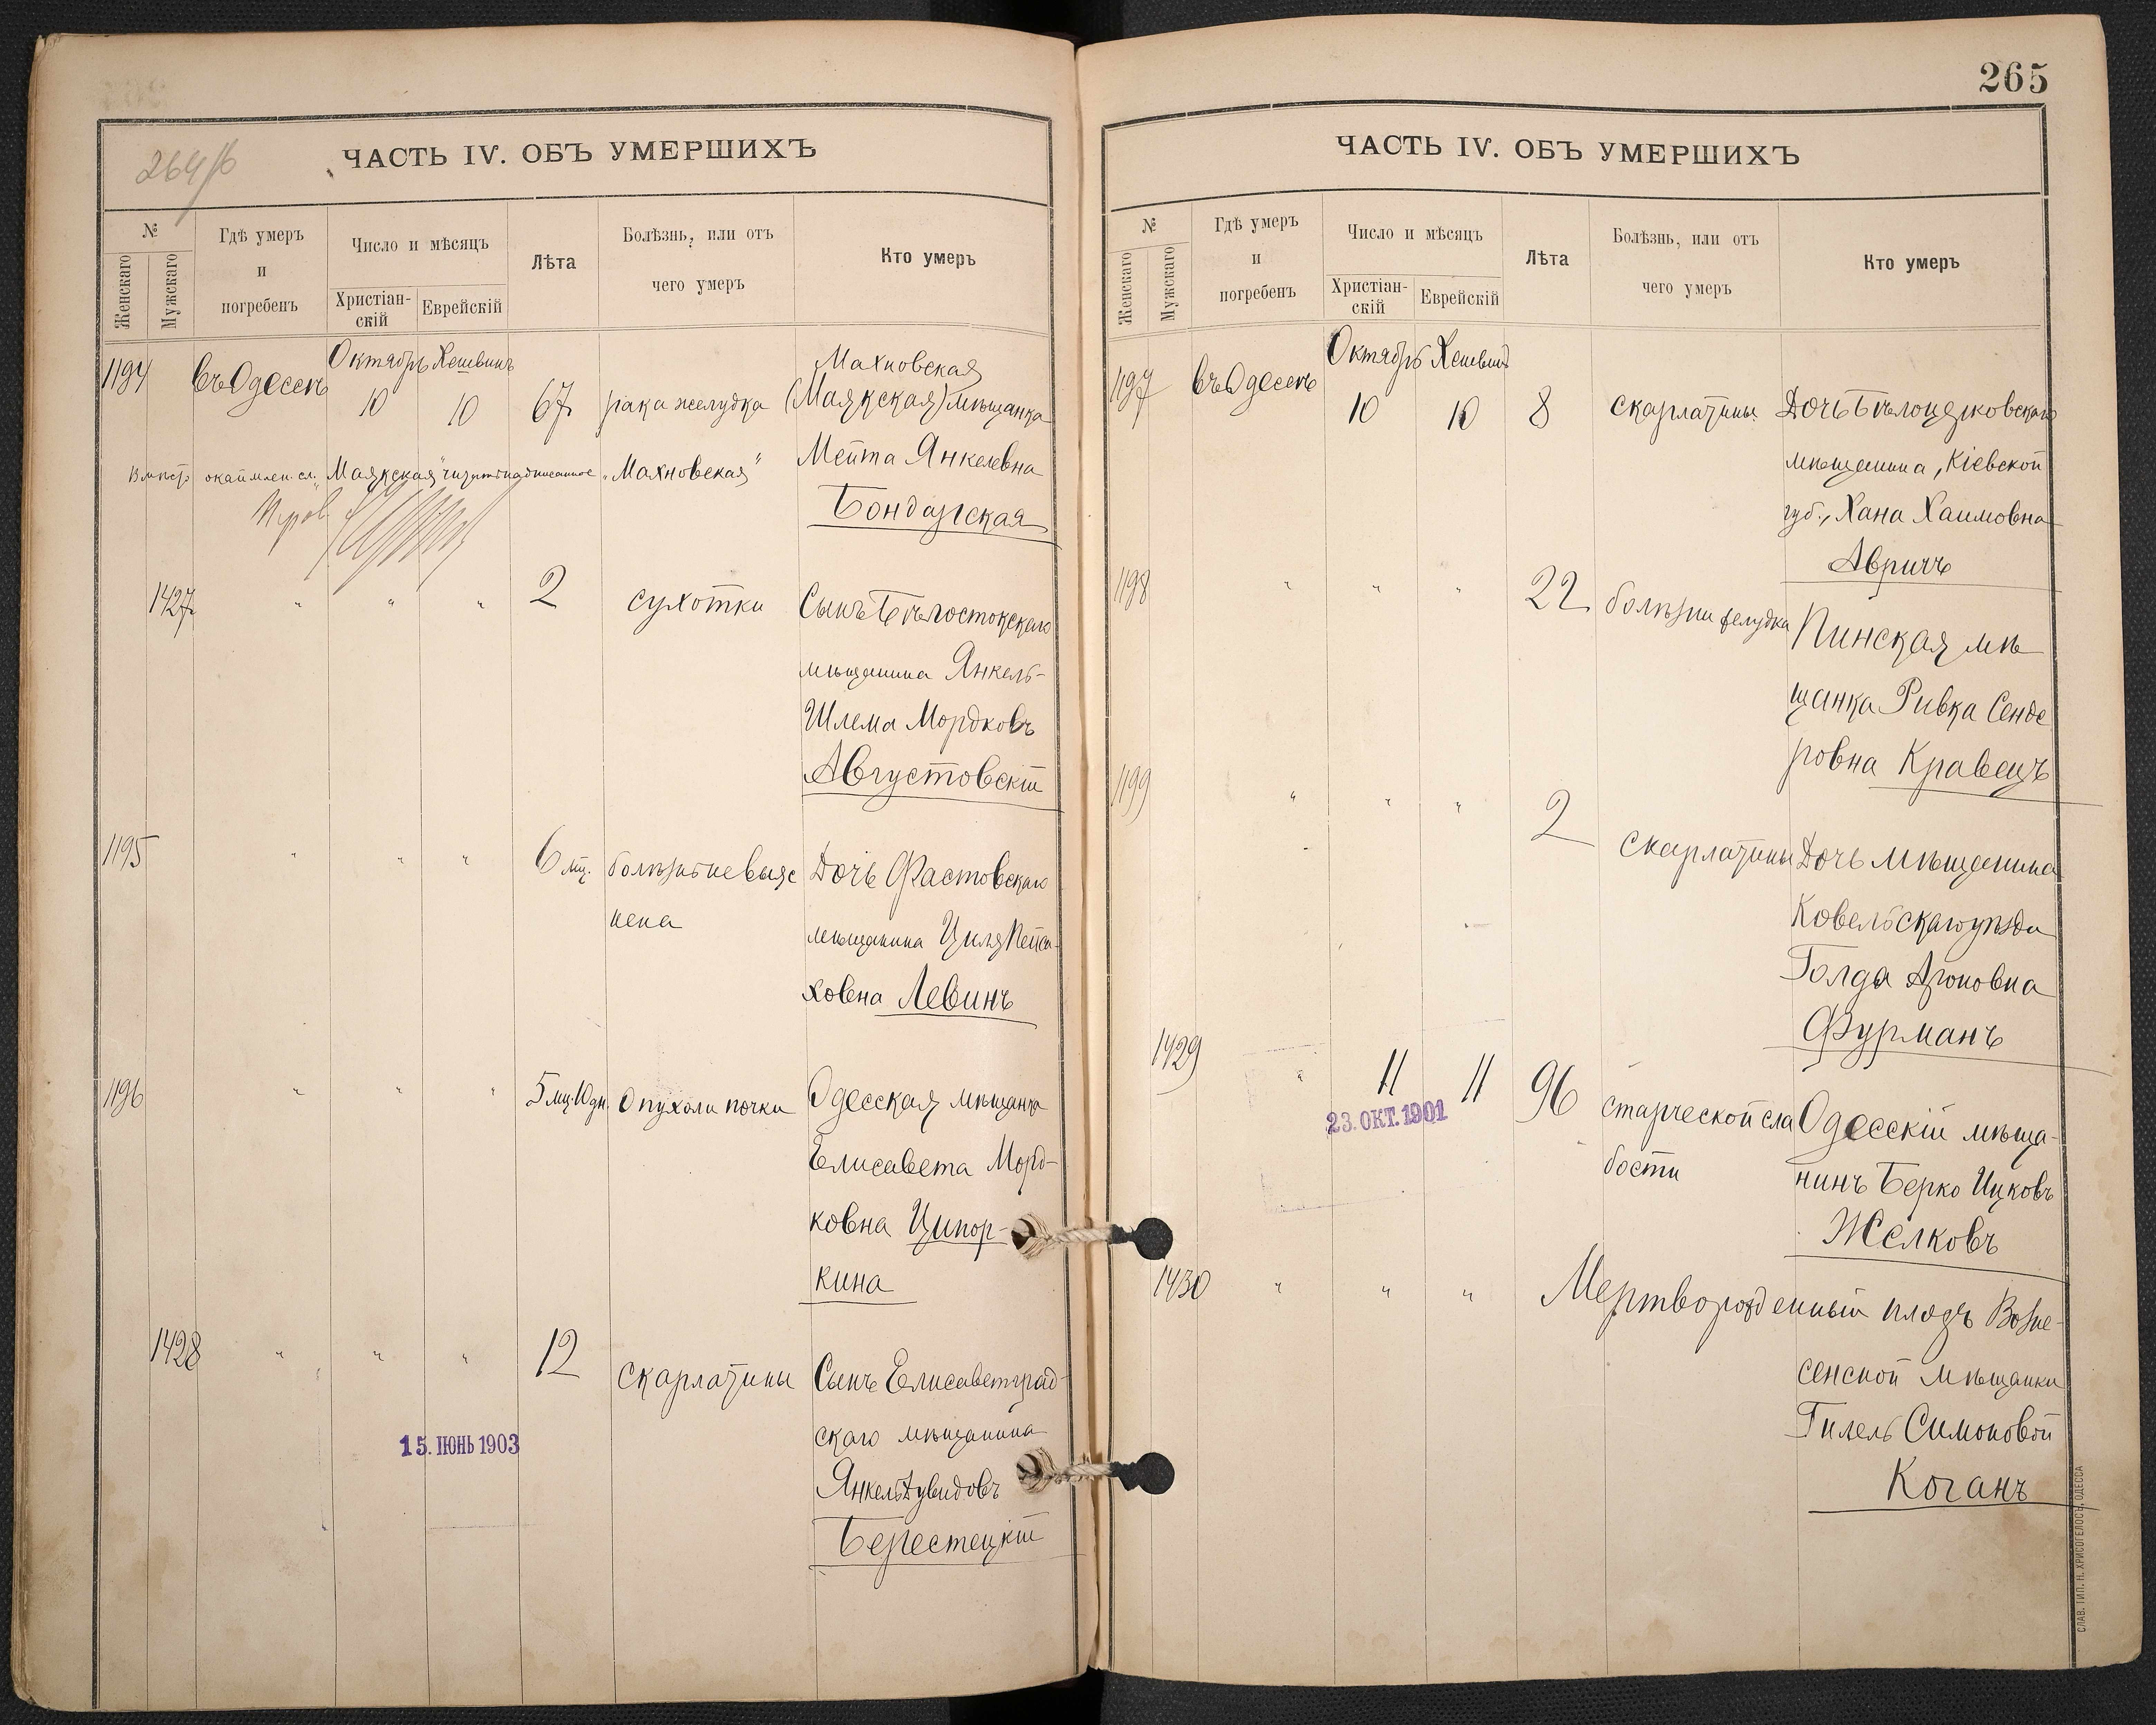 264/б
ЧАСТЬ IV. ОБЪ УМЕРШИХЪ
№
Женскаго
Мужскаго
Гдѣ умеръ
и
погребенъ
Число и мѣсяцъ
Христіан-
скій
Еврейскій
Лѣта
Болѣзнь, или отъ
чего умеръ
Кто умеръ
1194 въ Одессѣ Октябрь 10 Хешвинъ 10 67 рака желудка
Махновская
(Маякская) мѣщанка
Мейта Янкелевна
Бондарская
Вмѣсто окаймлен. сл. „Маякская" читать надписанное „Махновская"
1427 " " " 2 сухотки
Сынъ Бѣлостокскаго
мѣщанина Янкель-
Шлема Мордковъ
Августовскій
1195 " " " 6 мц. болѣзнь невыяс
нена
Дочь Фастовскаго
мѣщанина Циля Пейса-
ховна Левинъ
1196 " " " 5 мц. 10 дн. Опухоли почки
Одесская мѣщанка
Елисавета Морд-
ковна Ципор-
кина
1428 " " " 12 скарлатины
Сынъ Елисаветград-
скаго мѣщанина
Янкель Дувидовъ
Берестецкій
15. ІЮНЬ 1903
265
ЧАСТЬ IV. ОБЪ УМЕРШИХЪ
№
Женскаго
Мужскаго
Гдѣ умеръ
и
погребенъ
Число и мѣсяцъ
Христіан-
скій
Еврейскій
Лѣта
Болѣзнь, или отъ
чего умеръ
Кто умеръ
1197 въ Одессѣ Октябрь 10 Хешвинъ 10 8 скарлатины
Дочь Бѣлоцерковскаго
мѣщанина, Кіевской
губ., Хана Хаимовна
Авричъ
1198 " " " 22 болѣзни желудка
Пинская мѣ
щанка Ривка Сенде
ровна Кравецъ
1199 " " " 2 скарлатины
Дочь мѣщанина
Ковельскаго уѣзда
Голда Ароновна
Фурманъ
1429 " 11 11 96 старческой сла
бости
Одесскій мѣща-
нинъ Берко Ицковъ
Желковъ
23. ОКТ. 1901
1430 " " " Мертворожденный плодъ Возне-
сенской мѣщанки
Гитель Симоновой
Коганъ
СЛАВ. ТИП. Н. ХРИСОГЕЛОСЪ, ОДЕССА